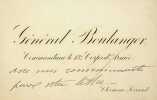 Général Boulanger,
Commandant le 13e Corps d'Armée
avec mes compliments
pour votre lettre
Clermont-Ferrand